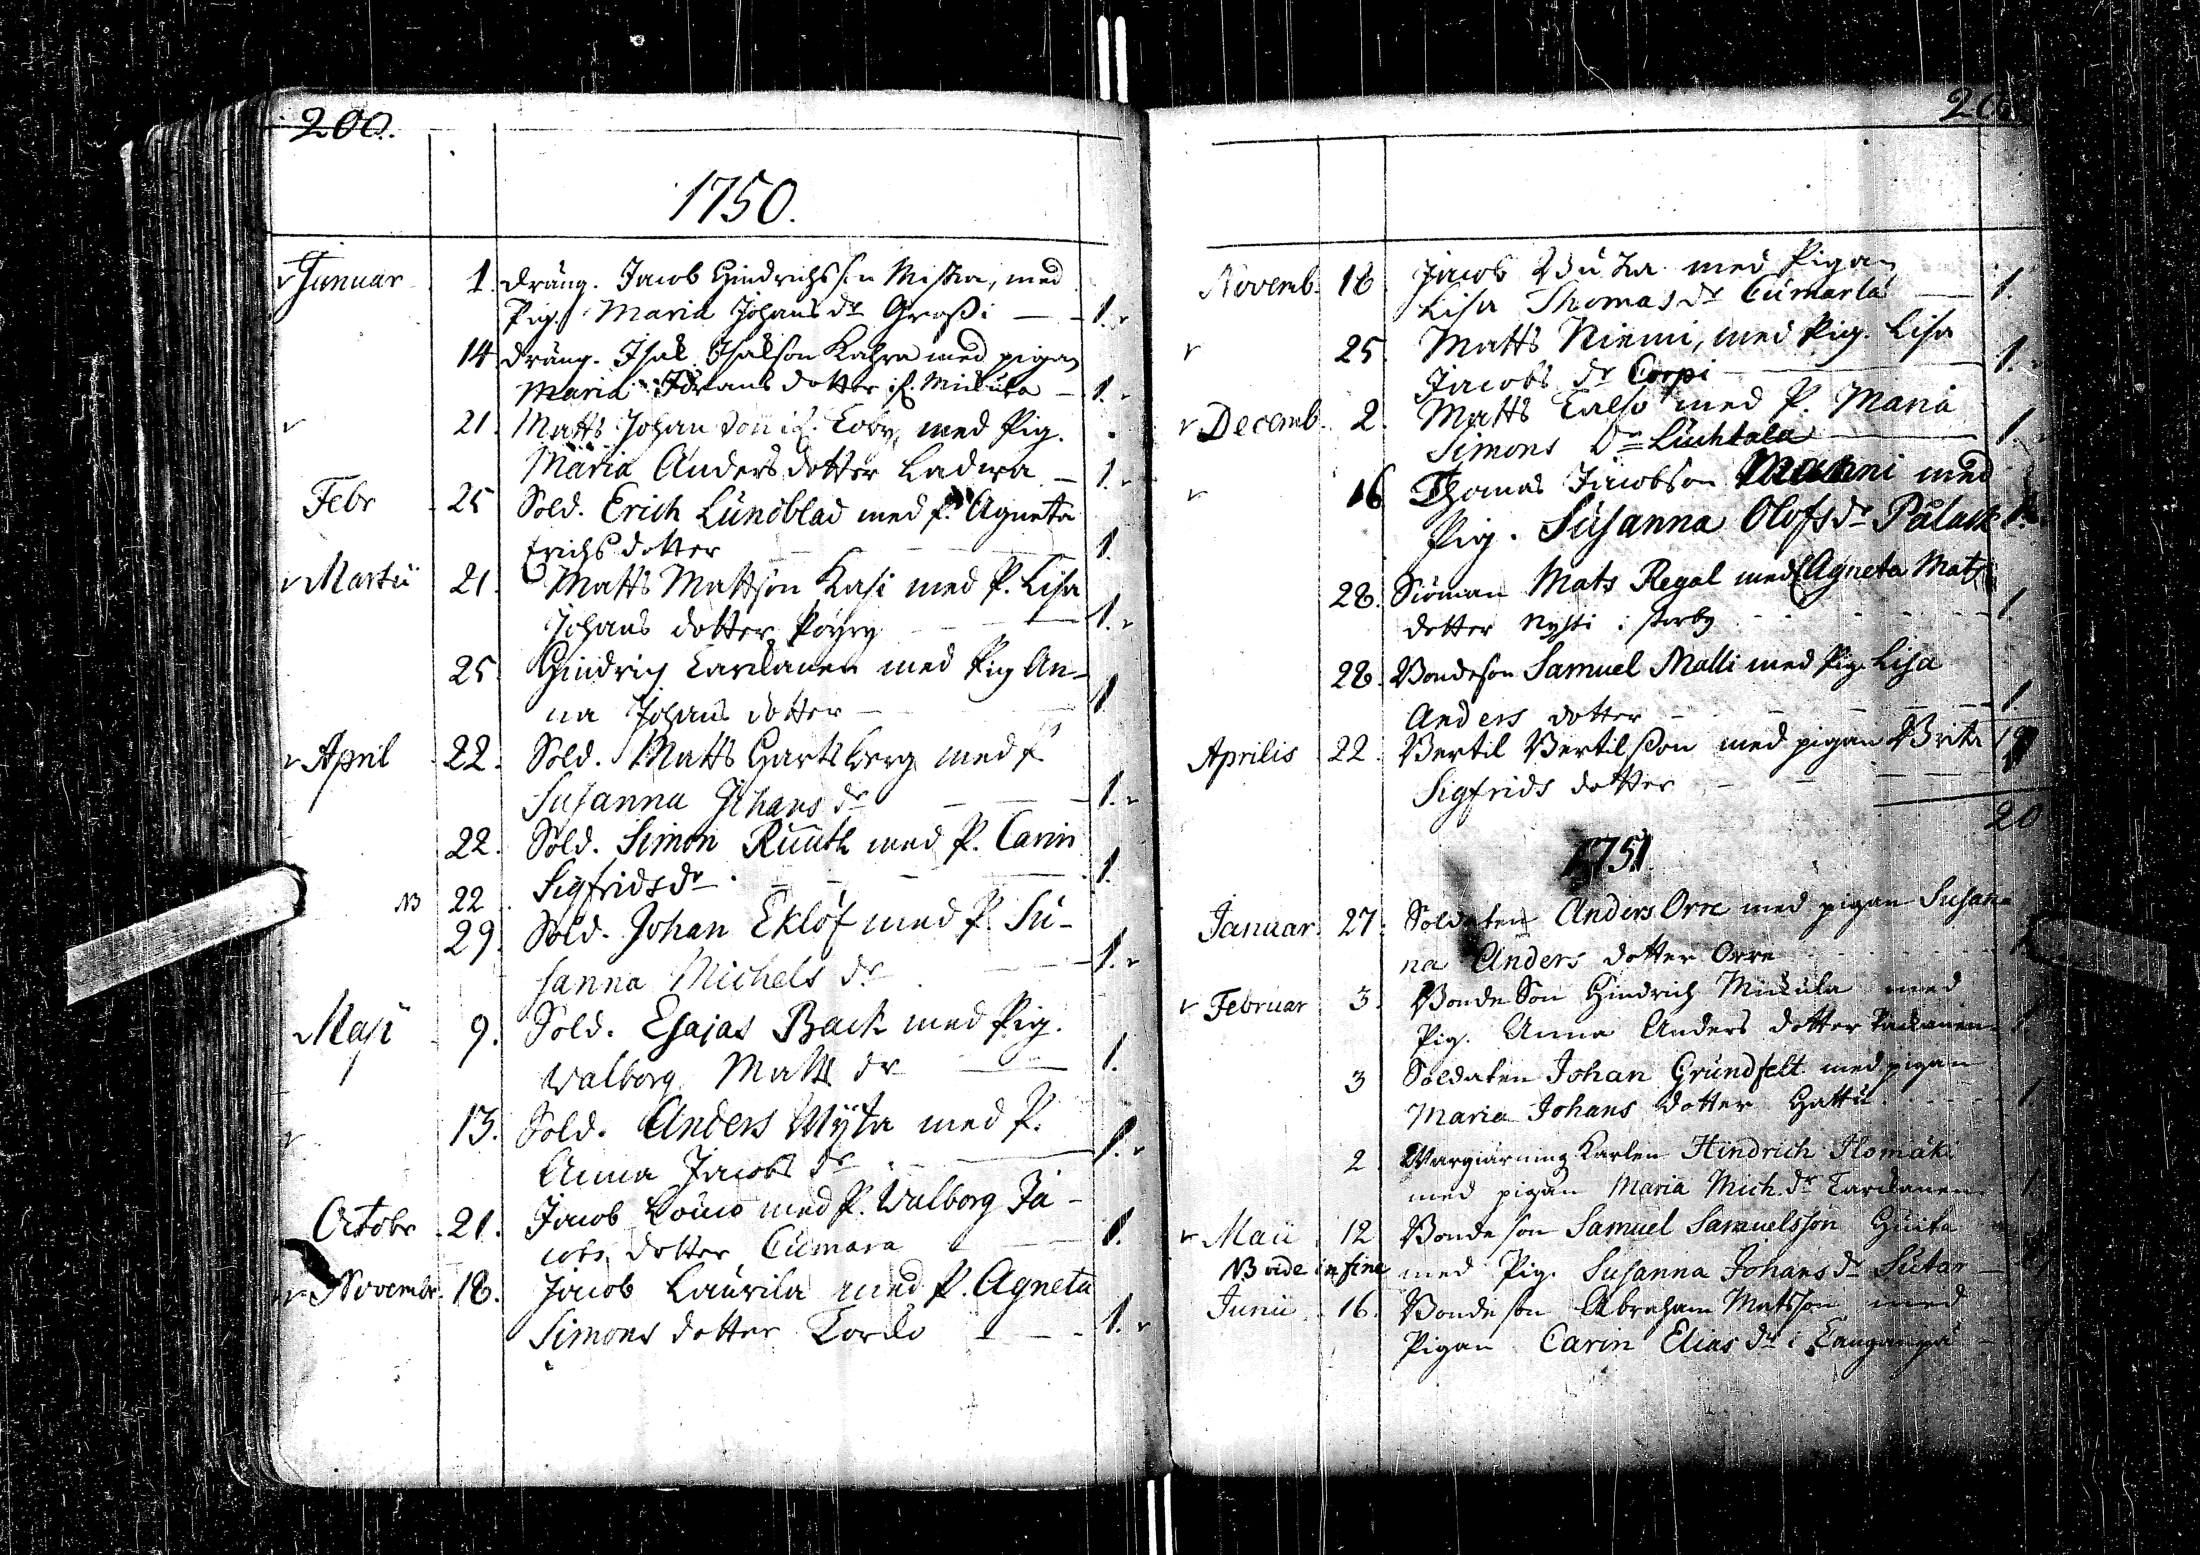 200.
1750.
Januar 1. Dräng. Jacob Hindrichsson Miska, med
Pig. Maria Johans dr Grossi — 1.
14 Dräng. Isak Isakson Kahra med pigan
Maria Jörans dotter if. Mickula — 1.
21. Matts Johansson if. Torv, med Pig.
Maria Anders dotter Ladwa — 1.
Febr 25 Sold. Erich Lundblad med P. Agneta
Erichs dotter — 1.
Martii 21. Matts Mattson Kasi med P. Lisa
Johans dotter Pöyry — 1.
25 Hindrich Tarckanen med Pig An-
na Johans dotter — 1
April 22. Sold. Matts Hartsberg med P.
Susanna Johans dr — 1.
22. Sold. Simon Ruuth med P. Carin
Sigfrids dr — 1.
NB 22
29. Sold. Johan Eklöf med P. Su-
sanna Michels dr — 1.
Maji 9. Sold. Esajas Back med Pig.
Walborg Matts dr — 1.
13. Sold. Anders Nyta med P.
Anna Jacobs dr — 1.
Octobr 21. Jacob med P. Walborg Ja-
cobs dotter Cumara — 1.
Novembr. 18. Jacob Laurila med P. Agneta
Simons dotter Torcko — 1.
Novemb. 18 Jacob med Pigan
Lisa Thomas dr Cumarla — 1.
25. Matts Niemi, med Pig. Lisa
Jacobs dr Corpi — 1.
Decemb. 2. Matts Talso med P. Maria
Simons Dr Luchtala — 1.
16 Thomas Jacobson Manni med
Pig. Susanna Olofs dr Palack 1.
28. Siöman Mats Regal med P. Agneta Mats
dotter Nysti i storby — 1.
28. Bondeson Samuel Malli med Pig. Lisa
Anders dotter — 1
Aprilis 22. Bertil Bertilsson med pigan Brita
Sigfrids dotter —
20
1751.
Januar. 27. Soldaten Anders Orre med pigan Susan-
na Anders dotter Orre
Februar 3. Bonde Son Hindrich Mickula med
Pig. Anna Anders dotter Packanen 1
3 Soldaten Johan Grundfelt med pigan
Maria Johans dotter Hattu 1
2 Wargiärning Karlen Hindrich Ilomäki
med pigan Maria Mich. dr Tarckanen 1.
Maii 12 Bonde son Samuel Samuelsson Huita
NB vide in fine med Pig. Susanna Johans dr Sutar —
Junii 16. Bonde son Abraham Matsson med
Pigan Carin Elias dr i —